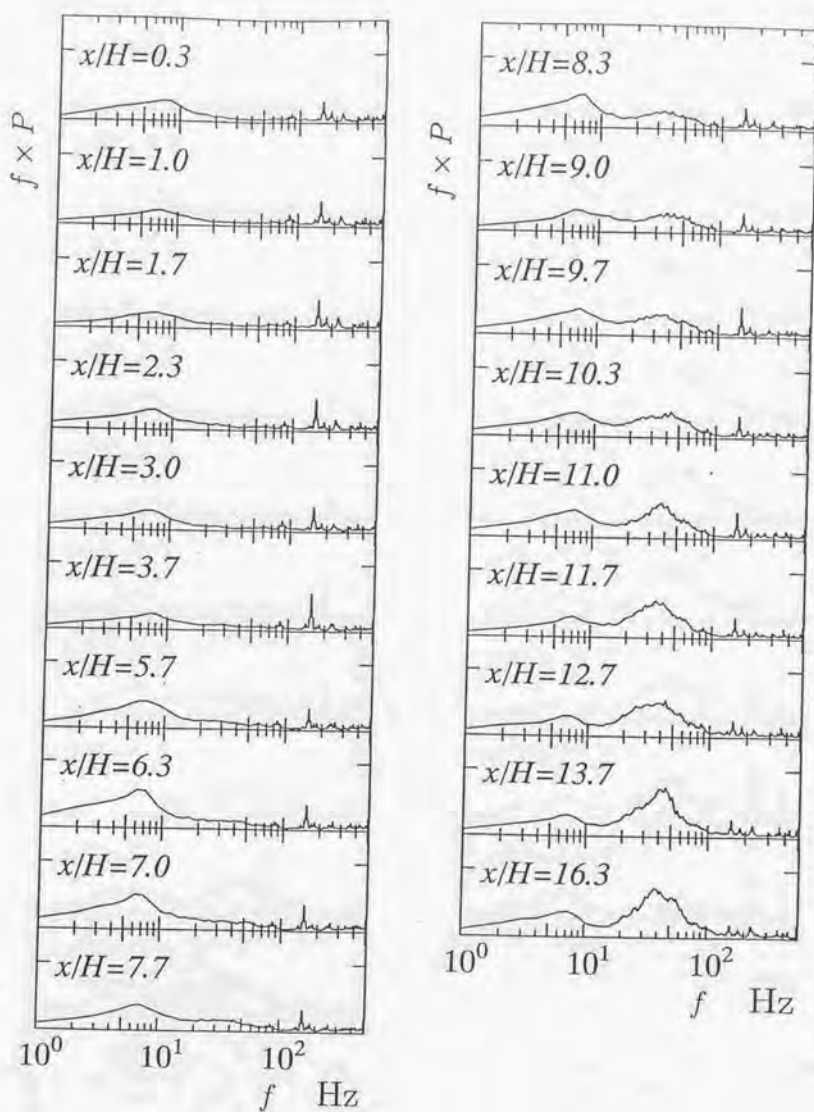 f × P
x/H=0.3
x/H=1.0
x/H=1.7
x/H=2.3
x/H=3.0
x/H=3.7
x/H=5.7
x/H=6.3
x/H=7.0
x/H=7.7
10⁰ 10¹ 10²
f Hz
f × P
x/H=8.3
x/H=9.0
x/H=9.7
x/H=10.3
x/H=11.0
x/H=11.7
x/H=12.7
x/H=13.7
x/H=16.3
10⁰ 10¹ 10²
f Hz